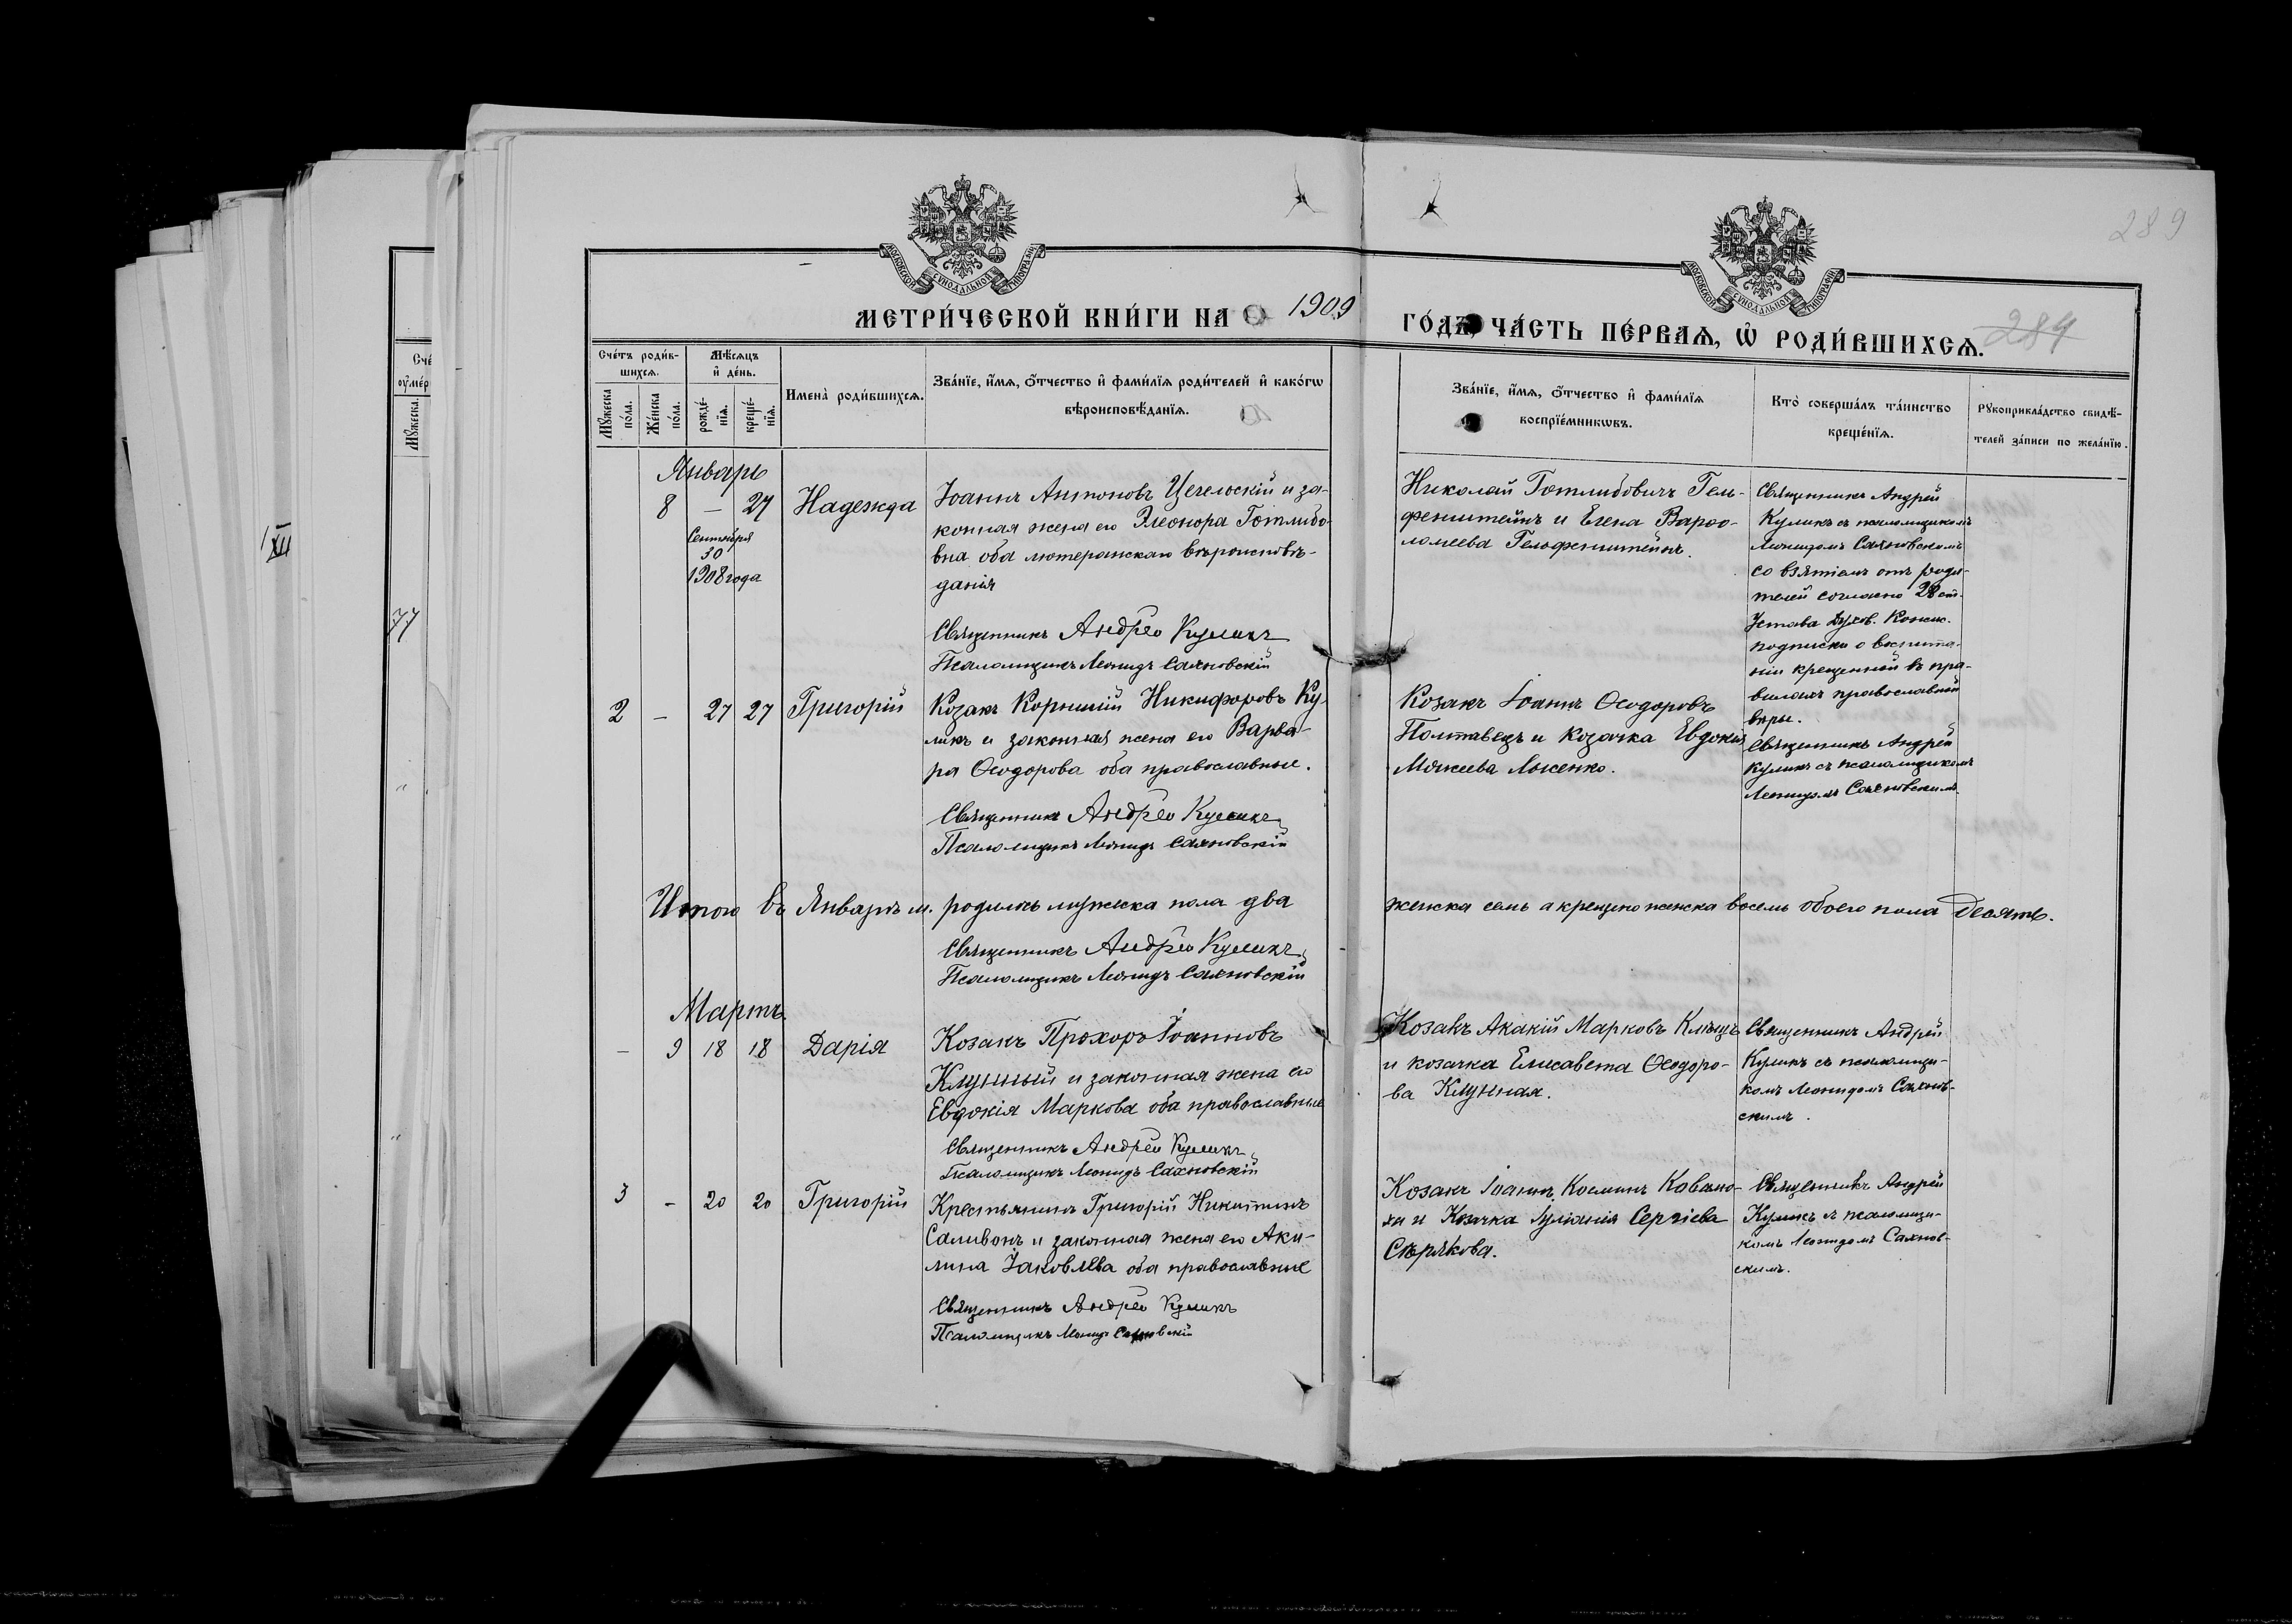 МОСКОВСКОЙ СѴНОДАЛЬНОЙ ТИПОГРАФІИ
МОСКОВСКОЙ СѴНОДАЛЬНОЙ ТИПОГРАФІИ
289
МЕТРИ́ЧЕСКОЙ КНИ́ГИ НА 1909
ГО́ДЪ, ЧА́СТЬ ПЕ́РВАѦ, Ѡ҆ РОДИ́ВШИХСѦ.
284
Сче́тъ роди́в-
шихсѧ.
Мꙋ́жеска
по́ла.
Же́нска
по́ла.
Мѣ́сѧцъ
и҆ де́нь.
рожде́-
нїѧ.
креще́-
нїѧ.
Имена̀ роди́вшихсѧ.
Зва́нїе, и҆́мѧ, ѻ҆́тчество и҆ фами́лїѧ роди́телей и҆ како́гѡ
вѣроисповѣ́данїѧ.
Зва́нїе, и҆́мѧ, ѻ҆́тчество и҆ фами́лїѧ
воспрїе́мникѡвъ.
Кто̀ соверша́лъ та́инство
креще́нїѧ.
Рꙋкоприкла́дство свидѣ́-
телей за́писи по жела́нїю.
Январь
8 — 27 Надежда
Сентября
30
1908 года
Іоаннъ Антоновъ Цегельскій и за-
конная жена его Элеонора Готлибо-
вна оба лютеранскаго вѣроисповѣ-
данія
Священникъ Андрей Куликъ
Псаломщикъ Леонидъ Сахновскій
Николай Готлибовичъ Гель-
фенштейнъ и Елена Варѳо-
ломеева Гельфенштейнъ.
Священникъ Андрей
Куликъ съ псаломщикомъ
Леонидомъ Сахновскимъ
со взятіемъ отъ роди-
телей согласно 28 ст.
Устава Духов. Консис.
подписки о воспита-
ніи крещенной въ пра-
вилахъ православной
вѣры.
2 — 27 27 Григорій
Козакъ Корнилій Никифоровъ Ку-
ликъ и законная жена его Варва-
ра Ѳеодорова оба православные.
Священникъ Андрей Куликъ
Псаломщикъ Леонидъ Сахновскій
Козакъ Іоаннъ Ѳеодоровъ
Полтавецъ и козачка Евдокія
Священникъ Андрей
Куликъ съ псаломщикомъ
Леонидомъ Сахновскимъ
Итого въ Январѣ м. родилось мужеска пола два
женска семь а крещено женска восемь обоего пола десять.
Священникъ Андрей Куликъ
Псаломщикъ Леонидъ Сахновскій
Мартъ.
— 9 18 18 Дарія
Козакъ Прохоръ Іоанновъ
Клунный и законная жена его
Евдокія Маркова оба православные
Священникъ Андрей Куликъ
Псаломщикъ Леонидъ Сахновскій
Козакъ Акакій Марковъ
и козачка Елисавета Ѳеодоро-
ва Клунная.
Священникъ Андрей
Куликъ съ псаломщи-
комъ Леонидомъ Сахнов-
скимъ.
3 — 20 20 Григорій
Крестьянинъ Григорій Никитинъ
Саливонъ и законная жена его Аки-
лина Іаковлева оба православные
Священникъ Андрей Куликъ
Псаломщикъ Леонидъ Сахновскій
Козакъ Іоаннъ Косминъ
и Козачка Іуліанія Сергіева
Сѣрякова.
Священникъ Андрей
Куликъ съ псаломщи-
комъ Леонидомъ Сахнов-
скимъ.
77